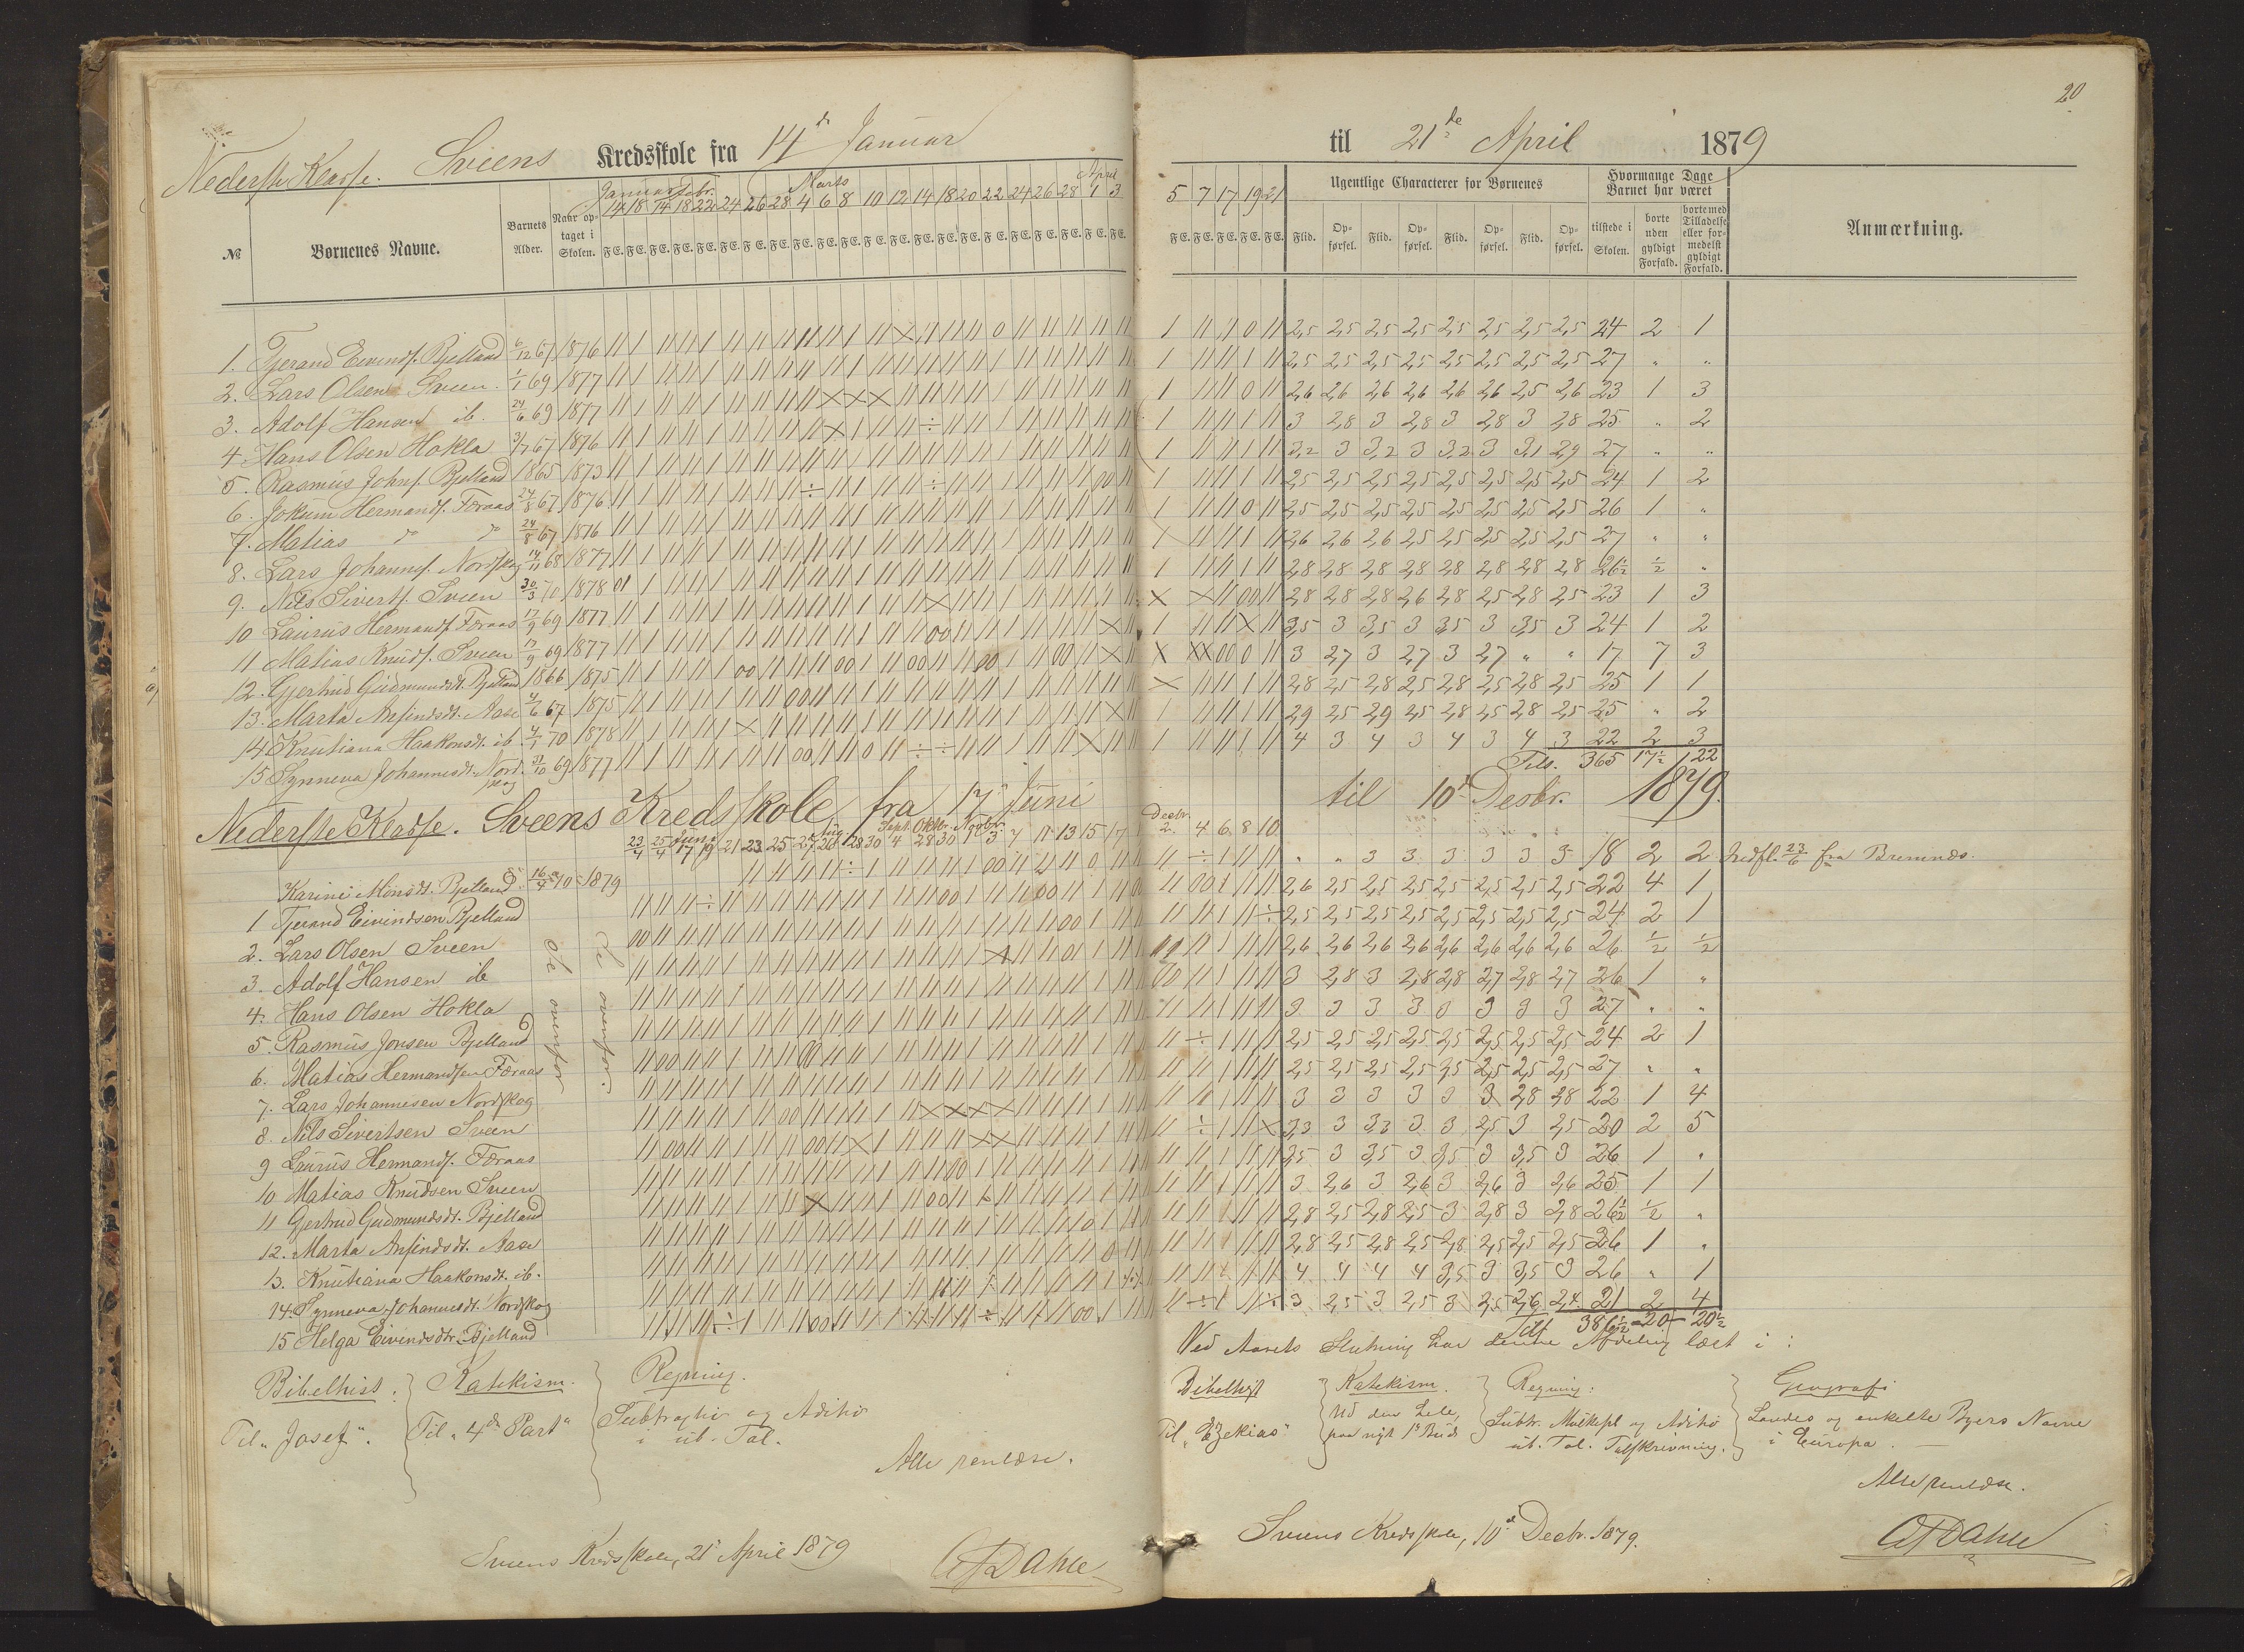 20
Nederste Klasse. Sveens Kredsskole fra 14de Januar til 21de April 1879
№ Børnenes Navne. Barnets Alder. Naar optaget i Skolen. Januar Febr. Marts April Ugentlige Characterer for Børnenes Hvormange Dage Barnet har været Anmærkning.
14 18 14 18 22 24 26 28 4 6 8 10 12 14 18 20 22 24 26 28 1 3 5 7 17 19 21
F.E. Flid. Opførsel. Flid. Opførsel. Flid. Opførsel. Flid. Opførsel. tilstede i Skolen. borte uden gyldigt Forfald. borte med Tilladelse eller formedelst gyldigt Forfald.
1. Tjerand Eivinds. Bjelland 6/12 67 1876 2,5 2,5 2,5 2,5 2,5 2,5 2,5 2,5 24 2 1
2. Lars Olsen Sveen 1/1 69 1877 2,5 2,5 2,5 2,5 2,5 2,5 2,5 2,5 27 " "
3. Adolf Hansen ib. 24/6 69 1877 2,6 2,6 2,6 2,6 2,6 2,6 2,5 2,6 23 1 3
4. Hans Olsen Hokla 3/7 67 1876 3 2,8 3 2,8 3 2,8 3 2,8 25 " 2
5. Rasmus Johns. Bjelland 1865 1873 3,2 3 3,2 3 3,2 3 3,1 2,9 27 " "
6. Jokum Hermands. Foraas 24/8 67 1876 2,5 2,5 2,5 2,5 2,5 2,5 2,5 2,5 24 1 2
7. Matias do do 24/8 67 1876 2,5 2,5 2,5 2,5 2,5 2,5 2,5 2,5 26 1 "
8. Lars Johannes. Nordskog 14/11 68 1877 2,6 2,6 2,6 2,5 2,5 2,5 2,5 2,5 27 " "
9. Nils Siverts. Sveen 30/3 70 1878 2,8 2,8 2,8 2,8 2,8 2,8 2,8 2,8 26½ ½ "
10 Laurus Hermands. Foraas 17/9 69 1877 2,8 2,8 2,8 2,6 2,8 2,5 2,8 2,5 23 1 3
11 Matias Knuds. Sveen 17/9 69 1877 3,5 3 3,5 3 3,5 3 3,5 3 24 1 2
12. Gjertrud Gudmundsdt. Bjelland 1866 1875 3 2,7 3 2,7 3 2,7 " " 17 7 3
13. Marta Anfindsdt. Aase 4/6 67 1875 2,8 2,5 2,8 2,5 2,8 2,5 2,8 2,5 25 1 1
14 Knutiana Haakonsdt. ib. 4/1 70 1878 2,9 2,5 2,9 2,5 2,8 2,5 2,8 2,5 25 " 2
15 Synneva Johannesdt. Nordskog 31/10 69 1877 4 3 4 3 4 3 4 3 22 2 3
Tils. 365 17½ 22
Nederste Klasse. Sveens Kredsskole fra 17de Juni til 10de Desbr. 1879.
23/4 25/4 Juni 17 19 21 23 25 27 Aug. 26 28 30 Sept. 4 Oktbr. 28 30 Novbr. 1 3 7 11 13 15 17 Decbr. 2. 4 6 8 10
Karine Monsdt. Bjelland 16/4 70 1879 " " 3 3 3 3 3 3 18 2 2 Indfl. 23/6 fra Bremnes.
1 Tjerand Eivindsen Bjelland 2,6 2,5 2,5 2,5 2,5 2,5 2,5 2,5 22 4 1
2. Lars Olsen Sveen 2,5 2,5 2,5 2,5 2,5 2,5 2,5 2,5 24 2 1
3. Adolf Hansen ib 2,6 2,6 2,6 2,6 2,6 2,6 2,6 2,6 26 ½ ½
4. Hans Olsen Hokla 3 2,8 3 2,8 2,8 2,7 2,8 2,7 26 1 "
5. Rasmus Jonsen Bjelland 3 3 3 3 3 3 3 3 27 " "
6. Matias Hermandsen Foraas 2,5 2,5 2,5 2,5 2,5 2,5 2,5 2,5 24 2 1
7. Lars Johannesen Nordskog 2,5 2,5 2,5 2,5 2,5 2,5 2,5 2,5 27 " "
8. Nils Sivertsen Sveen 3 3 3 3 3 3 2,8 2,8 22 1 4
9 Laurus Hermands. Foraas 3,3 3 3,3 3 3 2,5 3 2,5 20 2 5
10. Matias Knudsen Sveen 3,5 3 3,5 3 3,5 3 3,5 3 26 1 "
11 Gjertrud Gudmundsdt. Bjelland 3 2,6 3 2,6 3 2,6 3 2,6 25 1 1
12. Marta Anfindsdt. Aase 2,8 2,5 2,8 2,5 3 2,8 3 2,8 26½ ½ "
13. Knutiana Haakonsdt. ib. 2,8 2,5 2,8 2,5 2,8 2,5 2,5 2,5 26 1 "
14. Synneva Johannesdt. Nordskog 4 4 4 4 3,5 3 3,5 3 26 " 1
15 Helga Eivindsdtr. Bjelland 3 2,5 3 2,5 3 2,5 2,6 2,4 21 2 4
Se ovenfor
Se ovenfor.
Tils 386½ 20 20½
Bibelhist. Katekism. Regning.
Til "Josef". Til "4de Part" Subtraktio og Aditio
i ub. Tal.
Alle renlæse.
Sveens Kredsskole, 21de April 1879
Ved Aarets Slutning har denne Afdeling læst i:
Bibelhist Katekism. Regning: Geografi
Til "Ezekias" Ud den hele, Subtr. Multipl og Aditio Landes og enkelte Byers Navne
paa nyt 1ste Bud ub. Tal. Talskrivning. i Europa.
Alle renlæse.
Sveens Kredsskole, 10de Decbr. 1879.